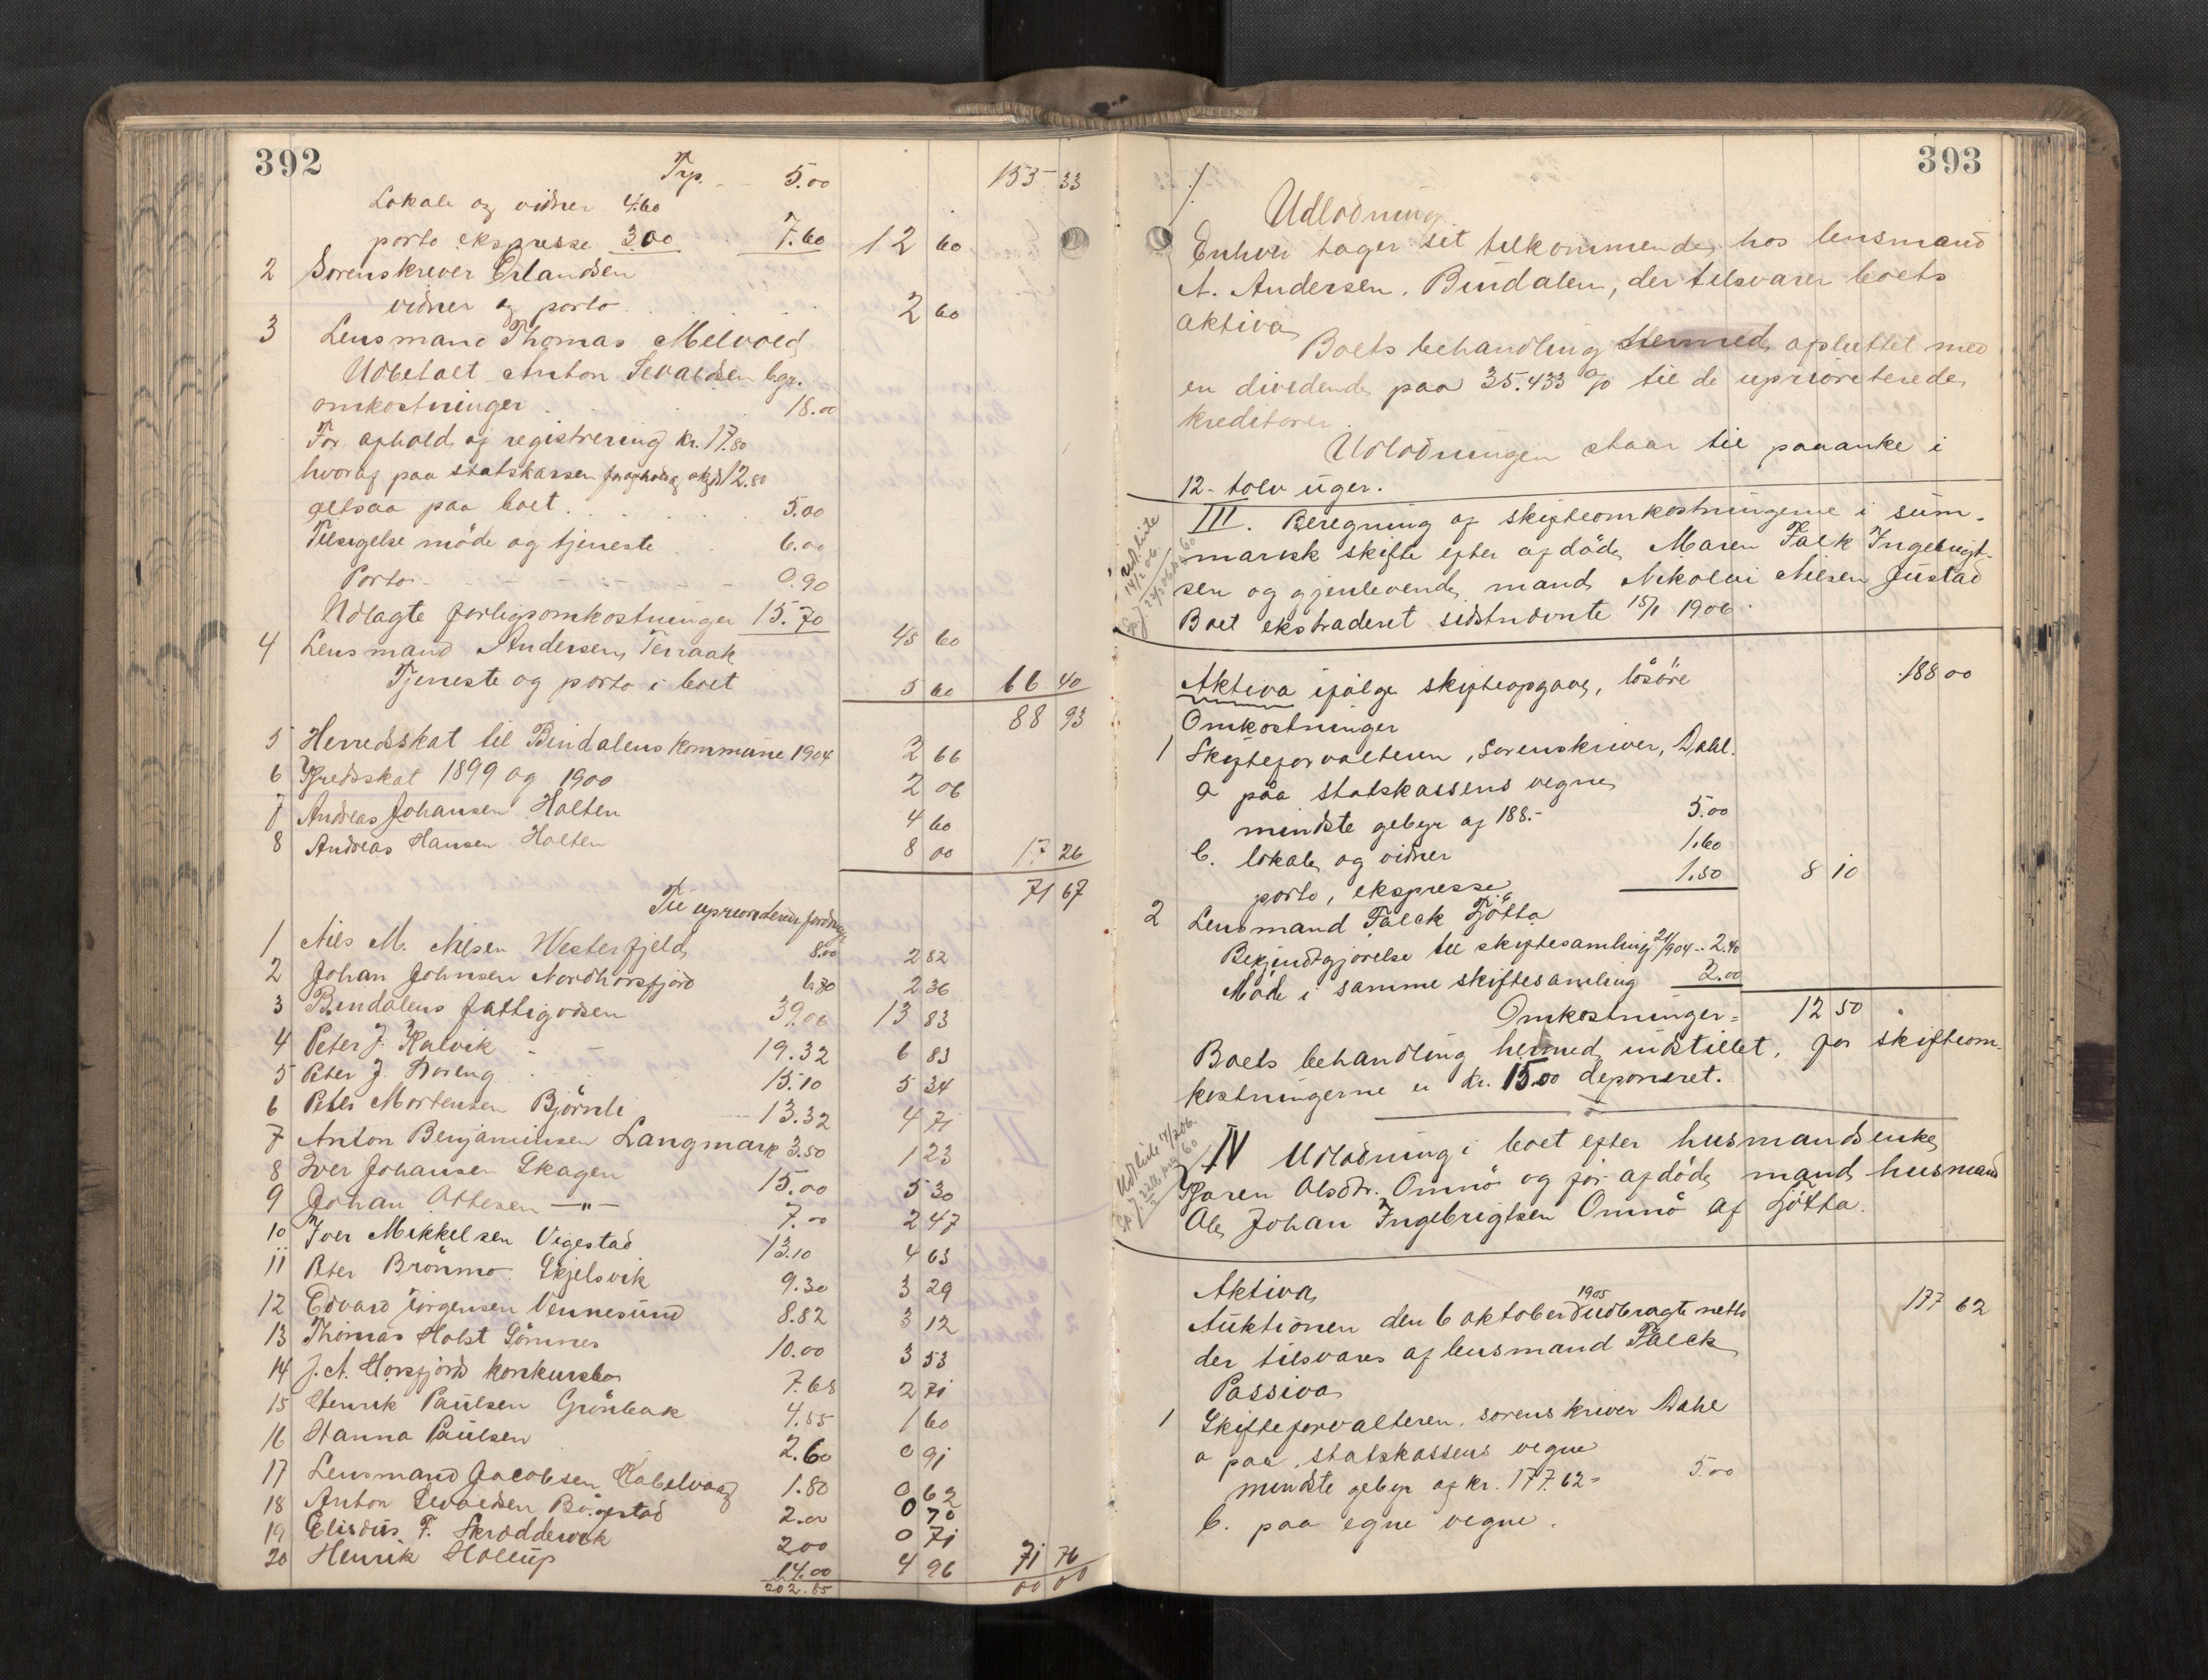 392
Trp. 5.00 155 33
Lokale og vidner 4.60
porto ekspresse 3.00 7.60 12 60
2 Sorenskriver Erlandsen
vidner og porto 2 60
3 Lensmand Thomas Melvold
Udbetalt Anton Sevaldsen bgr.
omkostninger 18.00
For aphold og registrering Kr. 17.80
hvoraf paa statskassen 12.80
altsaa paa boet 5.00
Tilsigelse möde og tjeneste 6.00
Porto 0.90
Udlagte forligsomkostninger 15.70 45 60
4 Lensmand Andersen, Terraak
Tjeneste og porto i boet 5 60 66 40
88 93
5 Herredsskat til Bindalens Kommune 1904 2 66
6 Kredsskat 1899 og 1900 2 06
7 Andreas Johansen Holten 4 60
8 Andreas Hansen Holten 8 00 17 26
71 67
Til uprioriterede fordringer
1 Nils M. Nilsen Westerfjeld 8.00 2 82
2 Johan Johnsen Nordhorsfjord 6.70 2 36
3 Bindalens fattigvæsen 39.06 13 83
4 Peter J. Kalvik 19.32 6 83
5 Peter J. Horeng 15.10 5 34
6 Peter Mortensen Björnli 13.32 4 71
7 Anton Benjaminsen Langmark 3.50 1 23
8 Iver Johansen Skagen 15.00 5 30
9 Johan Ottesen —"— 7.00 2 47
10 Iver Mikkelsen Vigestad 13.10 4 63
11 Peter Brönmo Skjelsvik 9.30 3 29
12 Edvard Jörgensen Vennesund 8.82 3 12
13 Thomas Holst Sömnes 10.00 3 53
14 J. A. Horsfjords konkursbo 7.68 2 71
15 Henrik Paulsen Grönbak 4.55 1 60
16 Hanna Paulsen 2.60 0 91
17 Lensmand Jacobsen Kabelvaag 1.80 0 62
18 Anton Sevaldsen Bøgestad 2.00 0 70
19 Elisæus F. Skræddervik 2.00 0 71
20 Henrik Hollup 14.00 4 96 71 76
202.85 00 00
393
Udlodning
Enhver tager sit tilkommende hos lensmand
A. Andersen, Bindalen, der tilsvarer boets
aktiva
Boets behandling hermed afsluttet med
en dividende paa 35.433 % til de uprioriterede
kreditorer.
Udlodningen staar til paaanke i
12 - tolv uger.
III. Beregning af skifteomkostningerne i sum-
marisk skifte efter afdöde Maren Falk Ingebrigt-
sen og gjenlevende mand Nikolai Nilsen Justad
Boet ekstraderet sidstnævnte 15/1 1906.
Aktiva ifölge skifteopgave, lösöre 188 00
Omkostninger
1 Skifteforvalteren, Sorenskriver, Dahl.
a paa statskassens vegne
mindste gebyr af 188.- 5.00
b. lokale og vidner 1.60
porto, ekspresse 1.50 8 10
2 Lensmand Falck Tjötta
Bekjendtgjörelse til skiftesamling 21/9 04 .. 2.40
Möde i samme skiftesamling 2.00
Omkostninger = 12 50
Boets behandling hermed indstillet, for skifteom-
kostningerne er Kr. 15.00 deponeret.
Udl liste 14/2 06
IV Udlodning i boet efter husmandsenke
Karen Olsdtr. Omnö og för afdöde mand husmand
Ole Johan Ingebrigtsen Omnö af Tjötta.
Aktiva
Auktionen den 6 oktober 1905 udbragte netto 177 62
der tilsvares af lensmand Falck
Passiva
1 Skifteforvalteren, sorenskriver Dahl
a paa statskassens vegne
mindste gebyr af kr. 177.62 = 5.00
b. paa egne vegne.